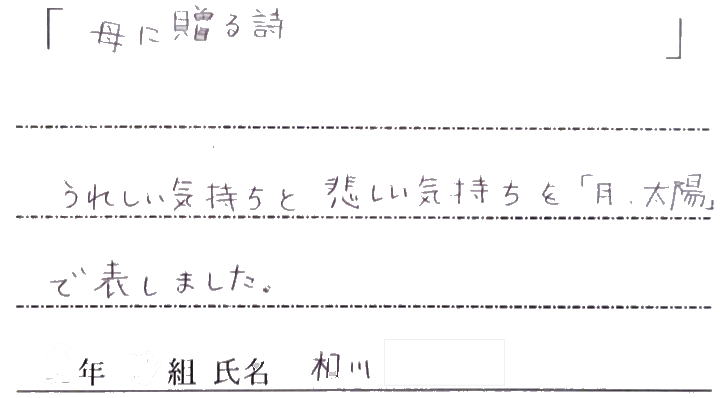 「母に贈る詩」
うれしい気持ちと悲しい気持ちを「月、太陽」
で表しました。
年 組 氏名 相川